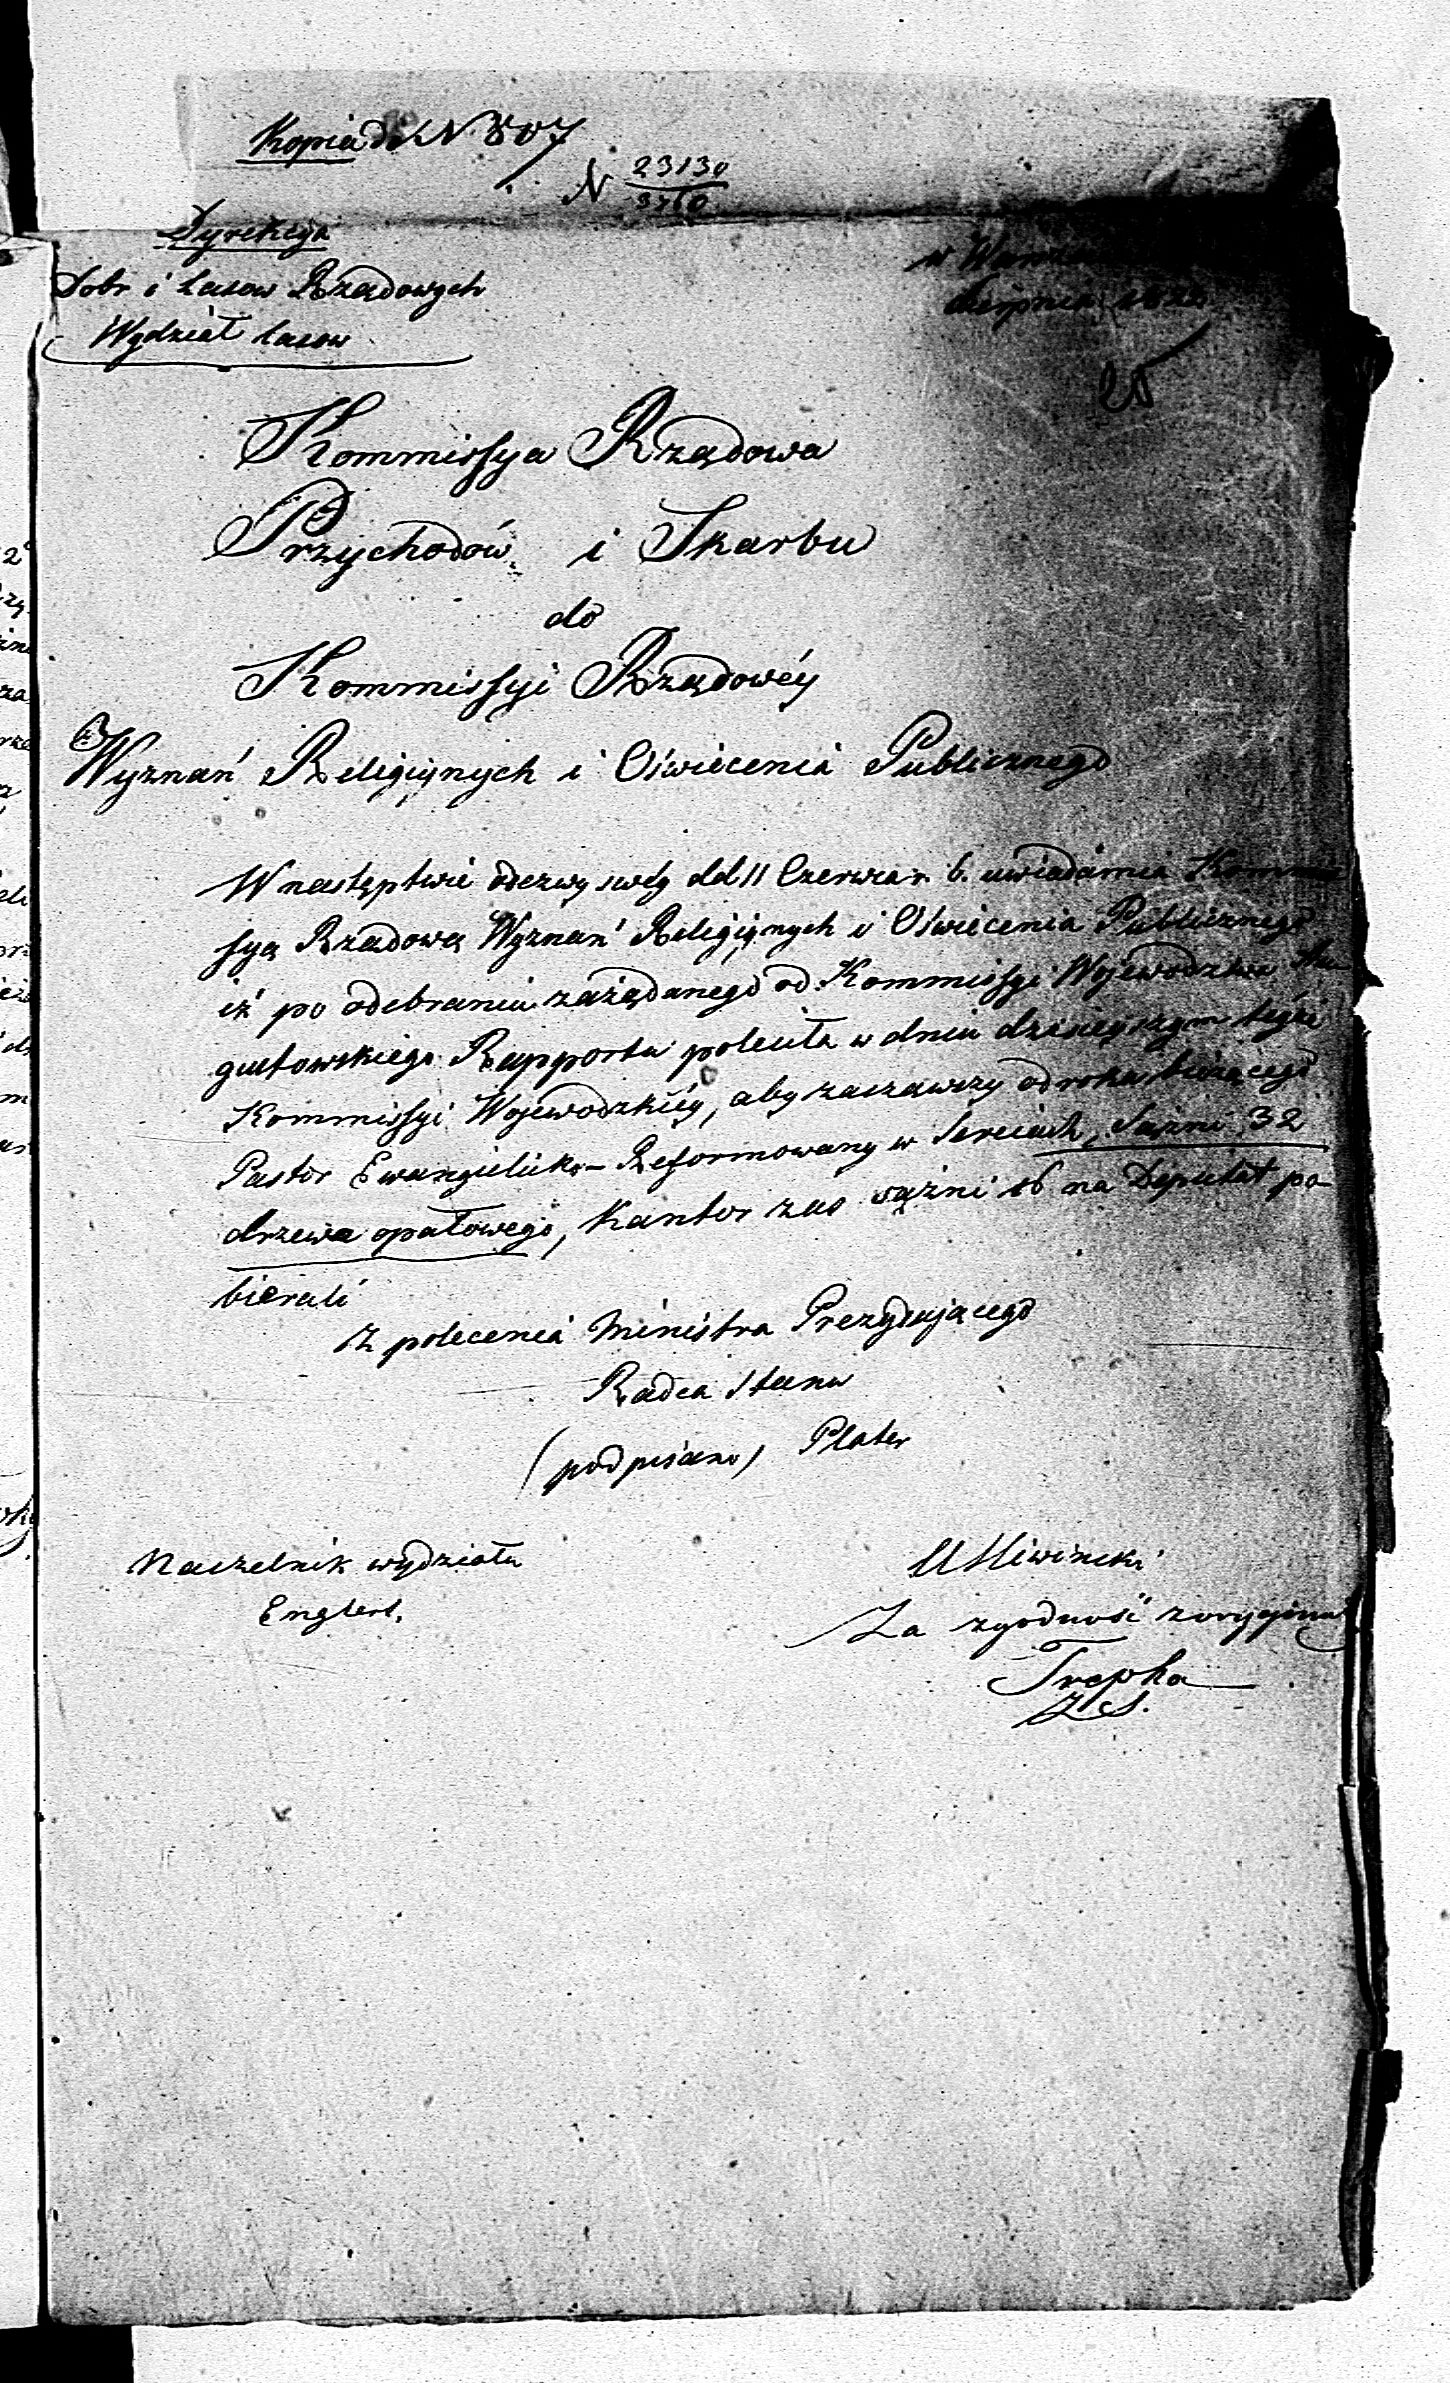 Kopia do N 807
N 23130
3760
Dyrekcya
Dobr i Lasow Rządowych
Wydział Lasow
w
Sierpnia 182
20
Kommissya Rządowa
Przychodów i Skarbu
do
Kommissyi Rządowéy
Wyznań Religiynych i Oświecenia Publicznego
W następtwie odezwy swéy dd 11 Czerwca r. b. uwiadamia Kommis
syą Rządową Wyznań Religiynych i Oświecenia Publicznego
iż po odebraniu zażądanego od Kommissyi Województwa Au
gustowskiego Rapportu poleciła w dniu dzisieyszym teyże
Kommissyi Wojewodzkiéy, aby zacząwszy od roku bieżącego
Pastor Ewangielicko-Reformowany w Sereiach, Sążni 32
drzewa opałowego, Kantor zas sążni 16 na Deputat po-
bierali
Z polecenia Ministra Prezydującego
Radca Stanu
(podpisano) Plater
Naczelnik wydziału
Englert.
Za zgodność z oryginał
Trepka
Z S.